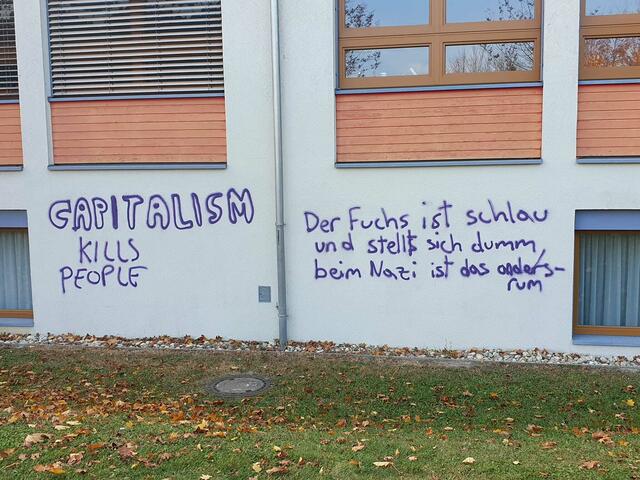 CAPITALISM
KILLS
PEOPLE
Der Fuchs ist schlau
und stellt sich dumm,
beim Nazi ist das anders-
rum